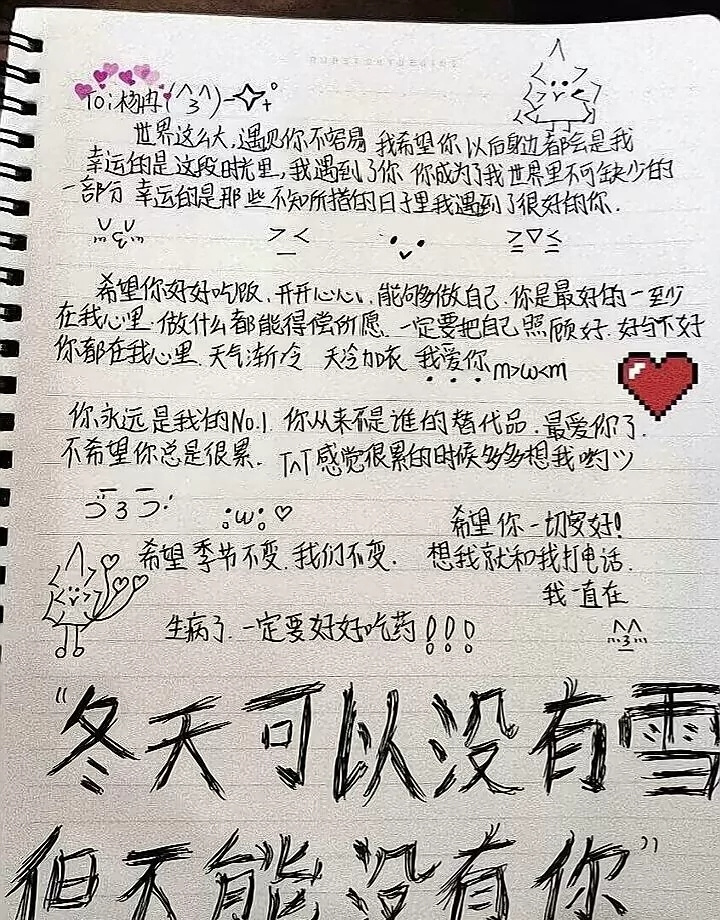 To:杨冉(^3^)
世界这么大,遇见你不容易 我希望你以后身边都会是我
幸运的是这段时光里,我遇到了你 你成为了我世界里不可缺少的
一部分 幸运的是那些不知所措的日子里我遇到了很好的你.
> <
≥▽≤
希望你好好吃饭、开开心心、能够做自己.你是最好的一至少
在我心里.做什么都能得偿所愿.一定要把自己照顾好.好与不好
你都在我心里.天气渐冷 天冷加衣 我爱你 m>ω<m
你永远是我的No.1.你从来不是谁的替代品.最爱你了.
不希望你总是很累. TAT感觉很累的时候多多想我哟
つ3つ
:ω:♡
希望你一切安好!
希望季节不变.我们不变. 想我就和我打电话.
我一直在
生病了.一定要好好吃药!!!
“冬天可以没有雪
但不能没有你”